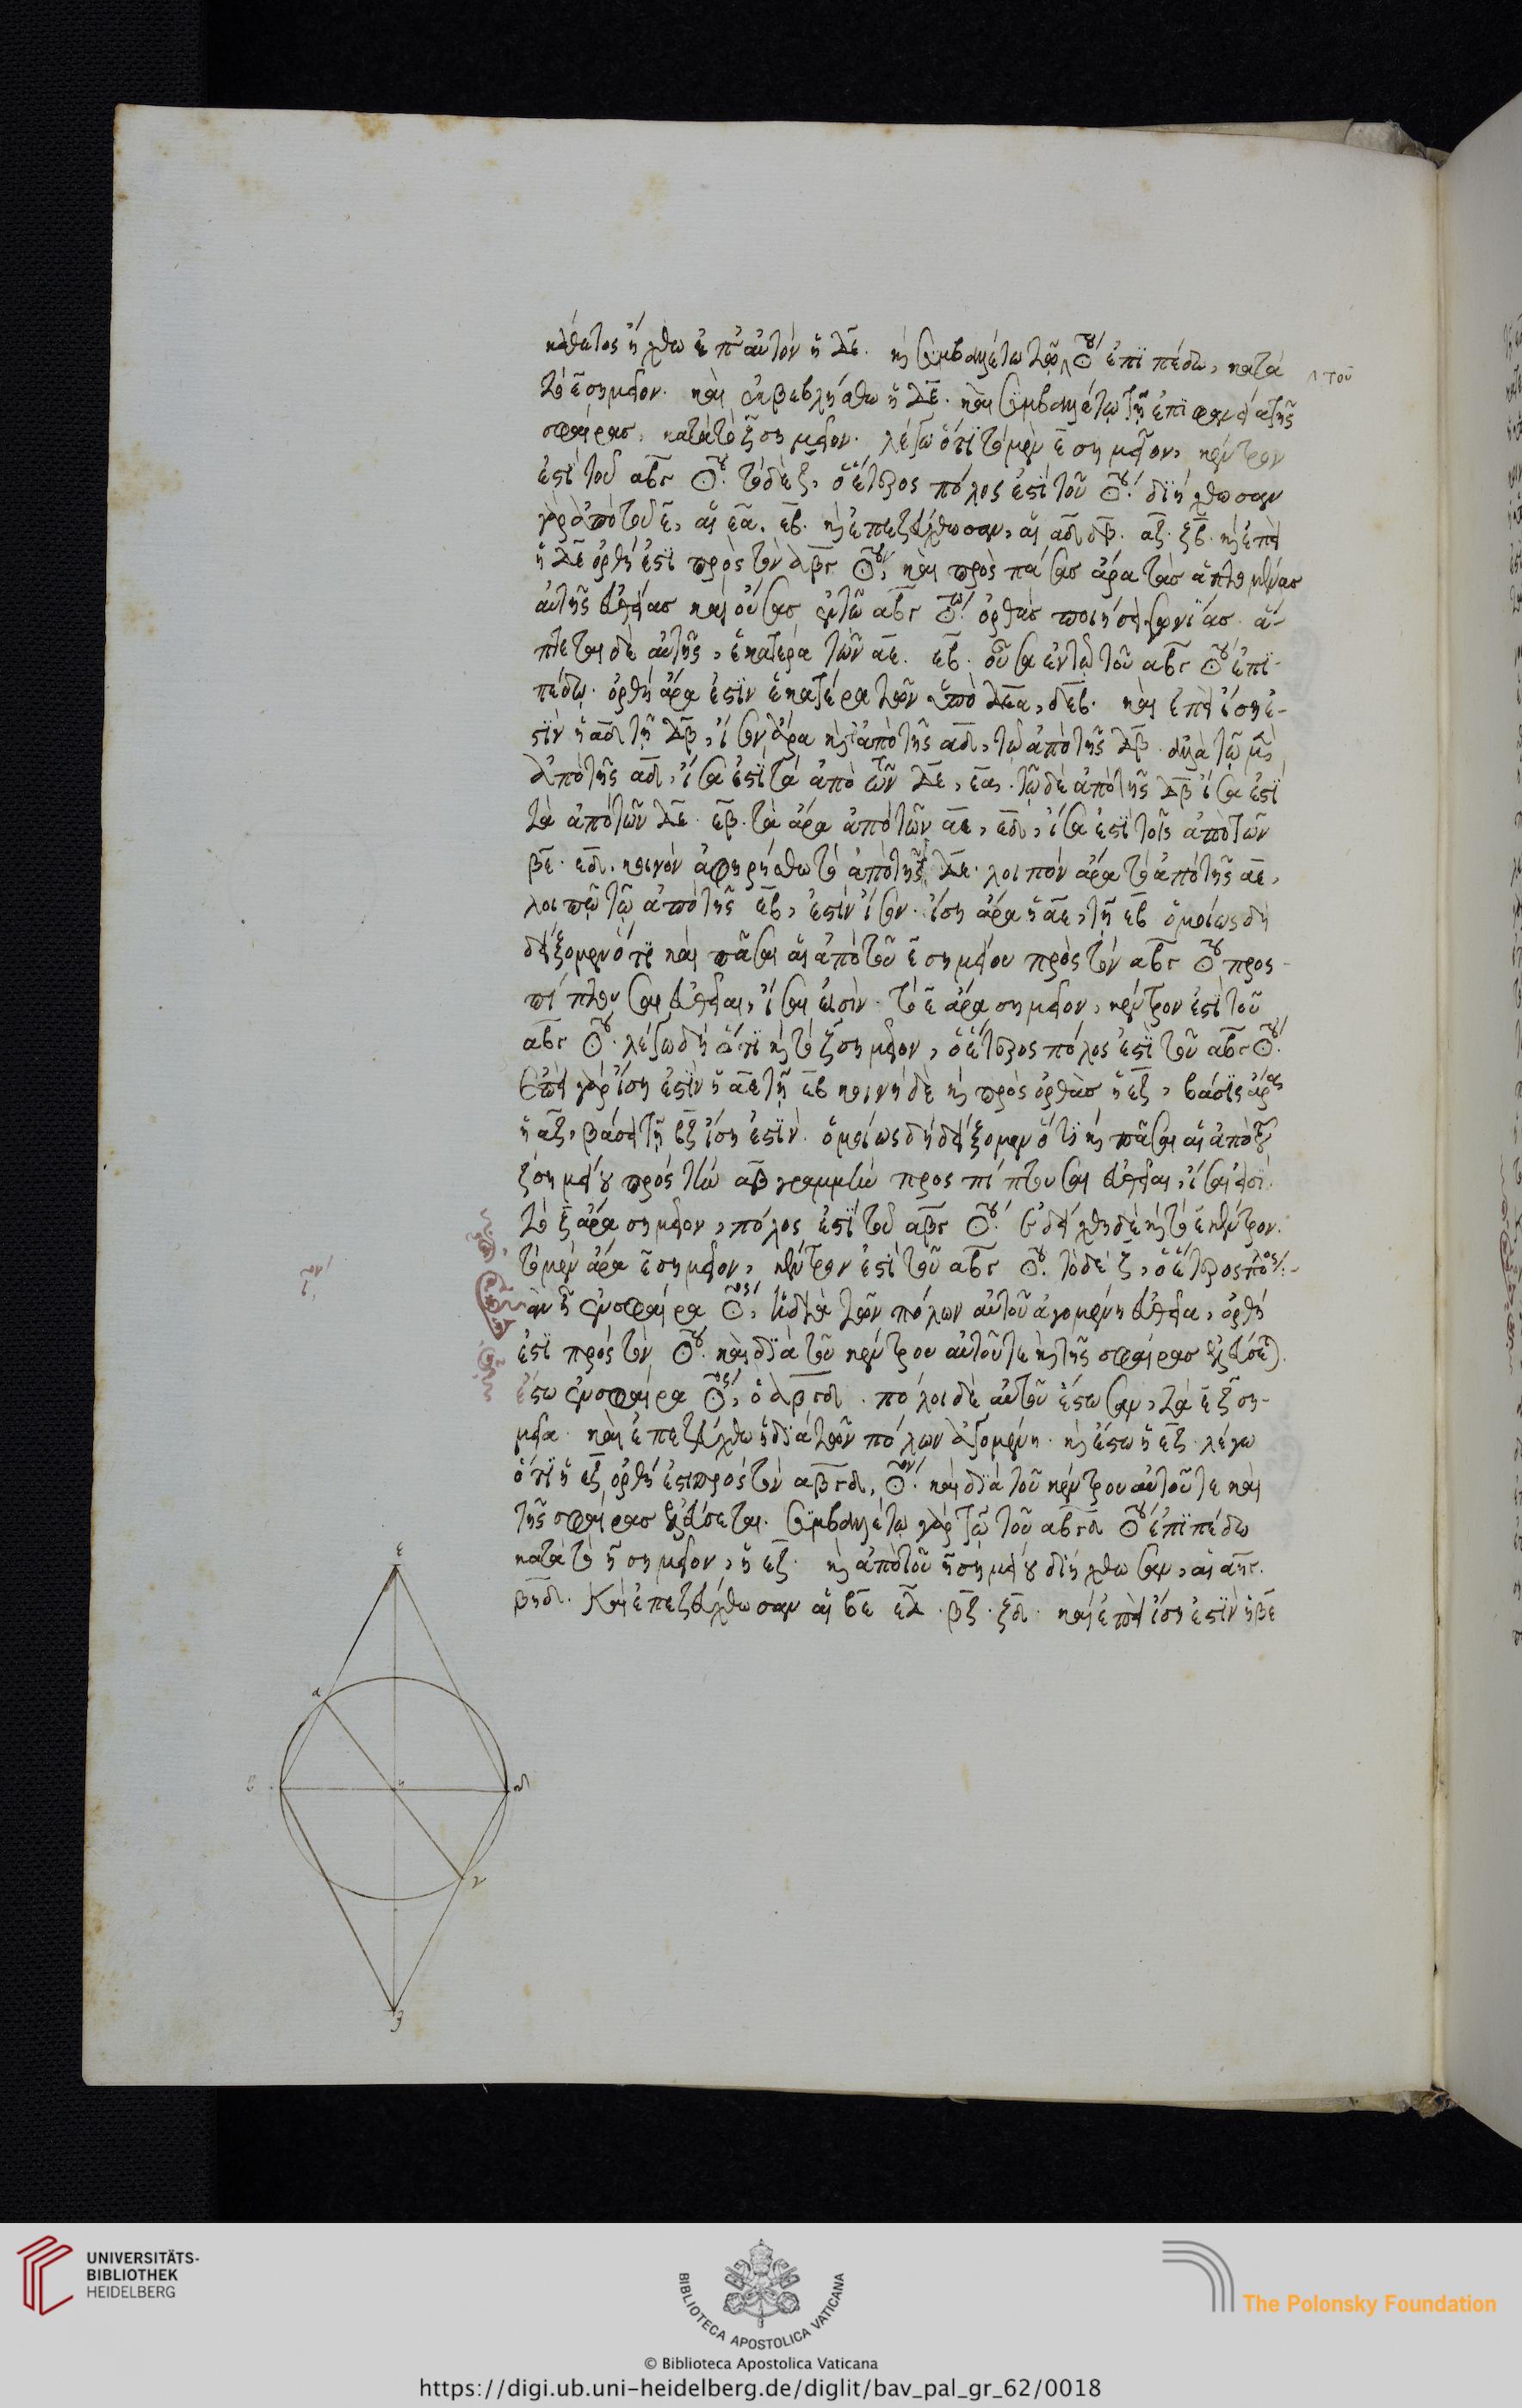 κάθετος ἤχθω ἐπ' αὐτὸν ἡ δε. κ(αὶ) συμβαλέτω τῷ ⊙ου ἐπιπέδω, κατὰ
τοῦ
τὸ ε σημεῖον. καὶ ἐκβεβλήσθω ἡ δε. καὶ συμβαλέτω τῇ ἐπιφανεία τῆς
σφαίρας, κατὰ τὸ ζ σημεῖον. λέγω ὅτι τὸ μὲν ε σημεῖον, κέντρον
ἐστὶ τοῦ αβγ ⊙ου. τὸ δὲ ζ, ὁ ἕτερος πόλος ἐστὶ τοῦ ⊙ου. διήχθωσαν
γὰρ ἀπὸ τοῦ ε, αἱ εα. εβ. κ(αὶ) ἐπεζεύχθωσαν, αἱ αδ δβ. αζ. ζβ. κ(αὶ) ἐπεὶ
ἡ δε ὀρθή ἐστι πρὸς τὸν αβγ ⊙ον, καὶ πρὸς πάσας ἄρα τὰς ἁπτομένας
αὐτῆς εὐθείας καὶ οὔσας ἐν τῷ αβγ ⊙ω ὀρθὰς ποιήσει γωνίας. ἅ-
πτεται δὲ αὐτῆς, ἑκατέρα τῶν αε. εβ. οὖσα ἐν τῷ τοῦ αβγ ⊙ου ἐπι-
πέδω. ὀρθὴ ἄρα ἐστὶν ἑκατέρα τῶν ὑπὸ δεα, δεβ. καὶ ἐπεὶ ἴση ἐ-
στὶν ἡ αδ τῇ δβ, ἴσον ἄρα κ(αὶ) τὸ ἀπὸ τῆς αδ, τῷ ἀπὸ τῆς δβ. ἀλλὰ τῷ μὲν
ἀπὸ τῆς αδ, ἴσα ἐστὶ τὰ ἀπὸ τῶν δε, εα. τῷ δὲ ἀπὸ τῆς δβ ἴσα ἐστὶ
τὰ ἀπὸ τῶν δε. εβ. τὰ ἄρα ἀπὸ τῶν αε, εδ, ἴσα ἐστὶ τοῖς ἀπὸ τῶν
βε. εδ. κοινὸν ἀφηρήσθω τὸ ἀπὸ τῆς δε. λοιπὸν ἄρα τὸ ἀπὸ τῆς αε,
λοιπῷ τῷ ἀπὸ τῆς εβ, ἐστὶν ἴσον. ἴση ἄρα ἡ αε, τῇ εβ ὁμοίως δὴ
δείξομεν ὅτι καὶ πᾶσαι αἱ ἀπὸ τοῦ ε σημείου πρὸς τὸν αβγ ⊙ου προς-
πίπτουσαι εὐθεῖαι, ἴσαι εἰσίν. τὸ ε ἄρα σημεῖον, κέντρον ἐστὶ τοῦ
αβγ ⊙ου. λέγω δὴ ὅτι κ(αὶ) τὸ ζ σημεῖον, ὁ ἕτερος πόλος ἐστὶ τοῦ αβγ ⊙ου.
ἐπεὶ γὰρ ἴση ἐστὶν ἡ αε τῇ εβ κοινὴ δὲ κ(αὶ) πρὸς ὀρθὰς ἡ εζ, βάσις ἄρα
ἡ αζ, βάσει τῇ βζ ἴση ἐστίν. ὁμοίως δὴ δείξομεν ὅτι κ(αὶ) πᾶσαι αἱ ἀπὸ τοῦ
ζ σημείου πρὸς τὴν αβ γραμμὴν προσπίπτουσαι εὐθεῖαι, ἴσαι εἰσί.
τὸ ζ ἄρα σημεῖον, πόλος ἐστὶ τοῦ αβγ ⊙ου. ἐδείχθη δὲ κ(αὶ) τὸ ε κέντρον.
τὸ μὲν ἄρα ε σημεῖον, κέντρον ἐστὶ τοῦ αβγ ⊙ου. τὸ δὲ ζ, ὁ ἕτερος πόλος:-
ὰν ᾖ ἐν σφαίρα ⊙ος, ἡ διὰ τῶν πόλων αὐτοῦ ἀγομένη εὐθεῖα, ὀρθή
ἐστι πρὸς τὸν ⊙ου. καὶ διὰ τοῦ κέντρου αὐτοῦ τε κ(αὶ) τῆς σφαίρας ἐλεύσεται.
ἔστω ἐν σφαίρα ⊙ος, ὁ αβγδ. πόλοι δὲ αὐτοῦ ἔστωσαν, τὰ ε ζ ση-
μεῖα. καὶ ἐπεζεύχθω ἡ διὰ τῶν πόλων ἀγομένη. κ(αὶ) ἔστω ἡ εζ. λέγω
ὅτι ἡ εζ ὀρθή ἐστι πρὸς τὸν αβγδ, ⊙ον. καὶ διὰ τοῦ κέντρου αὐτοῦ τε καὶ
τῆς σφαίρας ἐλεύσεται. συμβαλέτω γὰρ τῷ τοῦ αβγδ ⊙ου ἐπιπέδω
κατὰ τὸ η σημεῖον, ἡ εζ. κ(αὶ) ἀπὸ τοῦ η σημείου διήχθωσαν, αἱ αηγ.
βηδ. Καὶ ἐπεζεύχθωσαν αἱ βε εδ. βζ. ζδ. καὶ ἐπεὶ ἴση ἐστὶν ἡ βε
ε
α
β
η
δ
γ
ζ
UNIVERSITÄTS-
BIBLIOTHEK
HEIDELBERG
BIBLIOTECA APOSTOLICA VATICANA
The Polonsky Foundation
© Biblioteca Apostolica Vaticana
https://digi.ub.uni-heidelberg.de/diglit/bav_pal_gr_62/0018